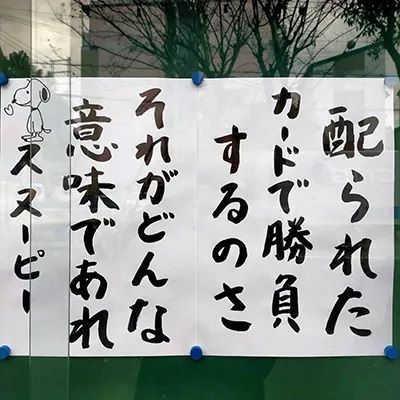 配られた
カードで勝負
するのさ
それがどんな
意味であれ
スヌーピー